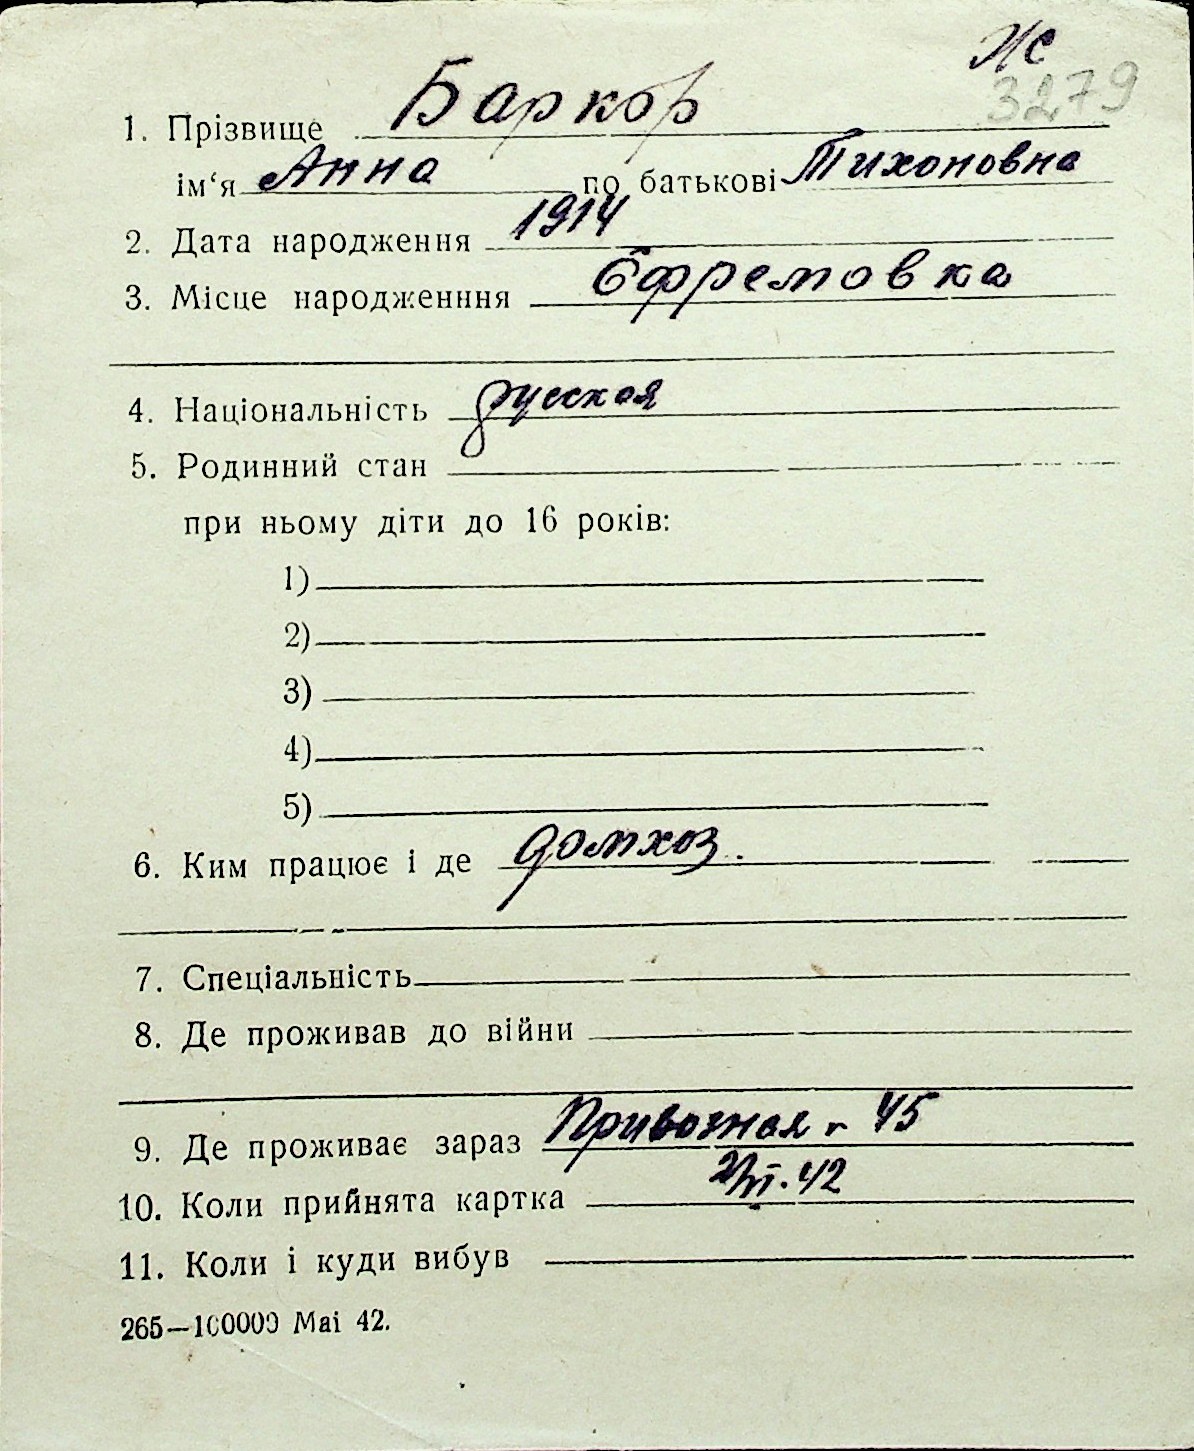 Жс
3279
1. Прізвище Баркор
ім‘я Анна по батькові Тихоновна
2. Дата народження 1914
3. Місце народженння Ефремовка
4. Національність русская
5. Родинний стан
при ньому діти до 16 років:
1)
2)
3)
4)
5)
6. Ким працює і де домхоз.
7. Спеціальність
8. Де проживав до війни
9. Де проживає зараз 45
10. Коли прийнята картка 2/VI.42
11. Коли і куди вибув
265—100000 Маі 42.